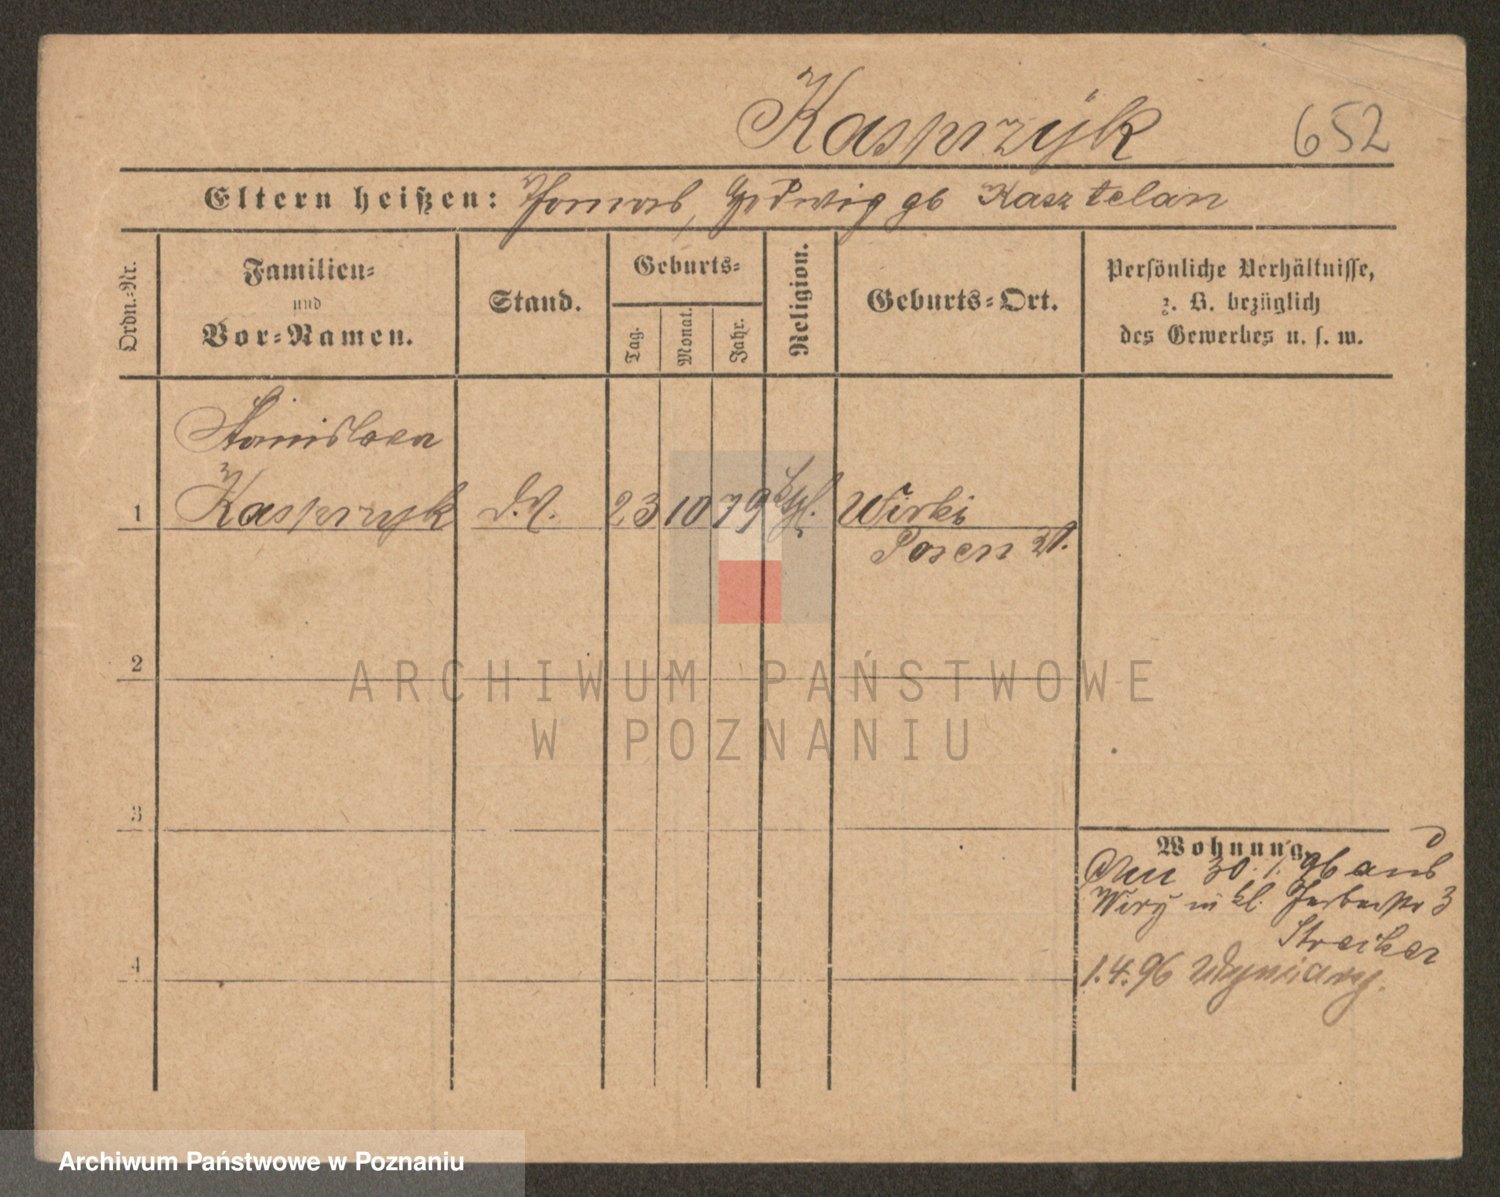 Kasprzyk 652
Eltern heißen: Thomas, Hedwig gb Kasztelan
Ordn.-Nr.
Familien-
und
Vor-Namen.
Stand.
Geburts-
Tag.
Monat.
Jahr.
Religion.
Geburts-Ort.
Persönliche Verhältnisse,
z. B. bezüglich
des Gewerbes u. s. w.
Stanislawa
1 Kasprzyk d.M. 23 10 79 kth. Wirki
Posen
2
3
4
Wohnung
30.1.96 aus
Wiry in kl. 3
1.4.96
ARCHIWUM PAŃSTWOWE
W POZNANIU
Archiwum Państwowe w Poznaniu